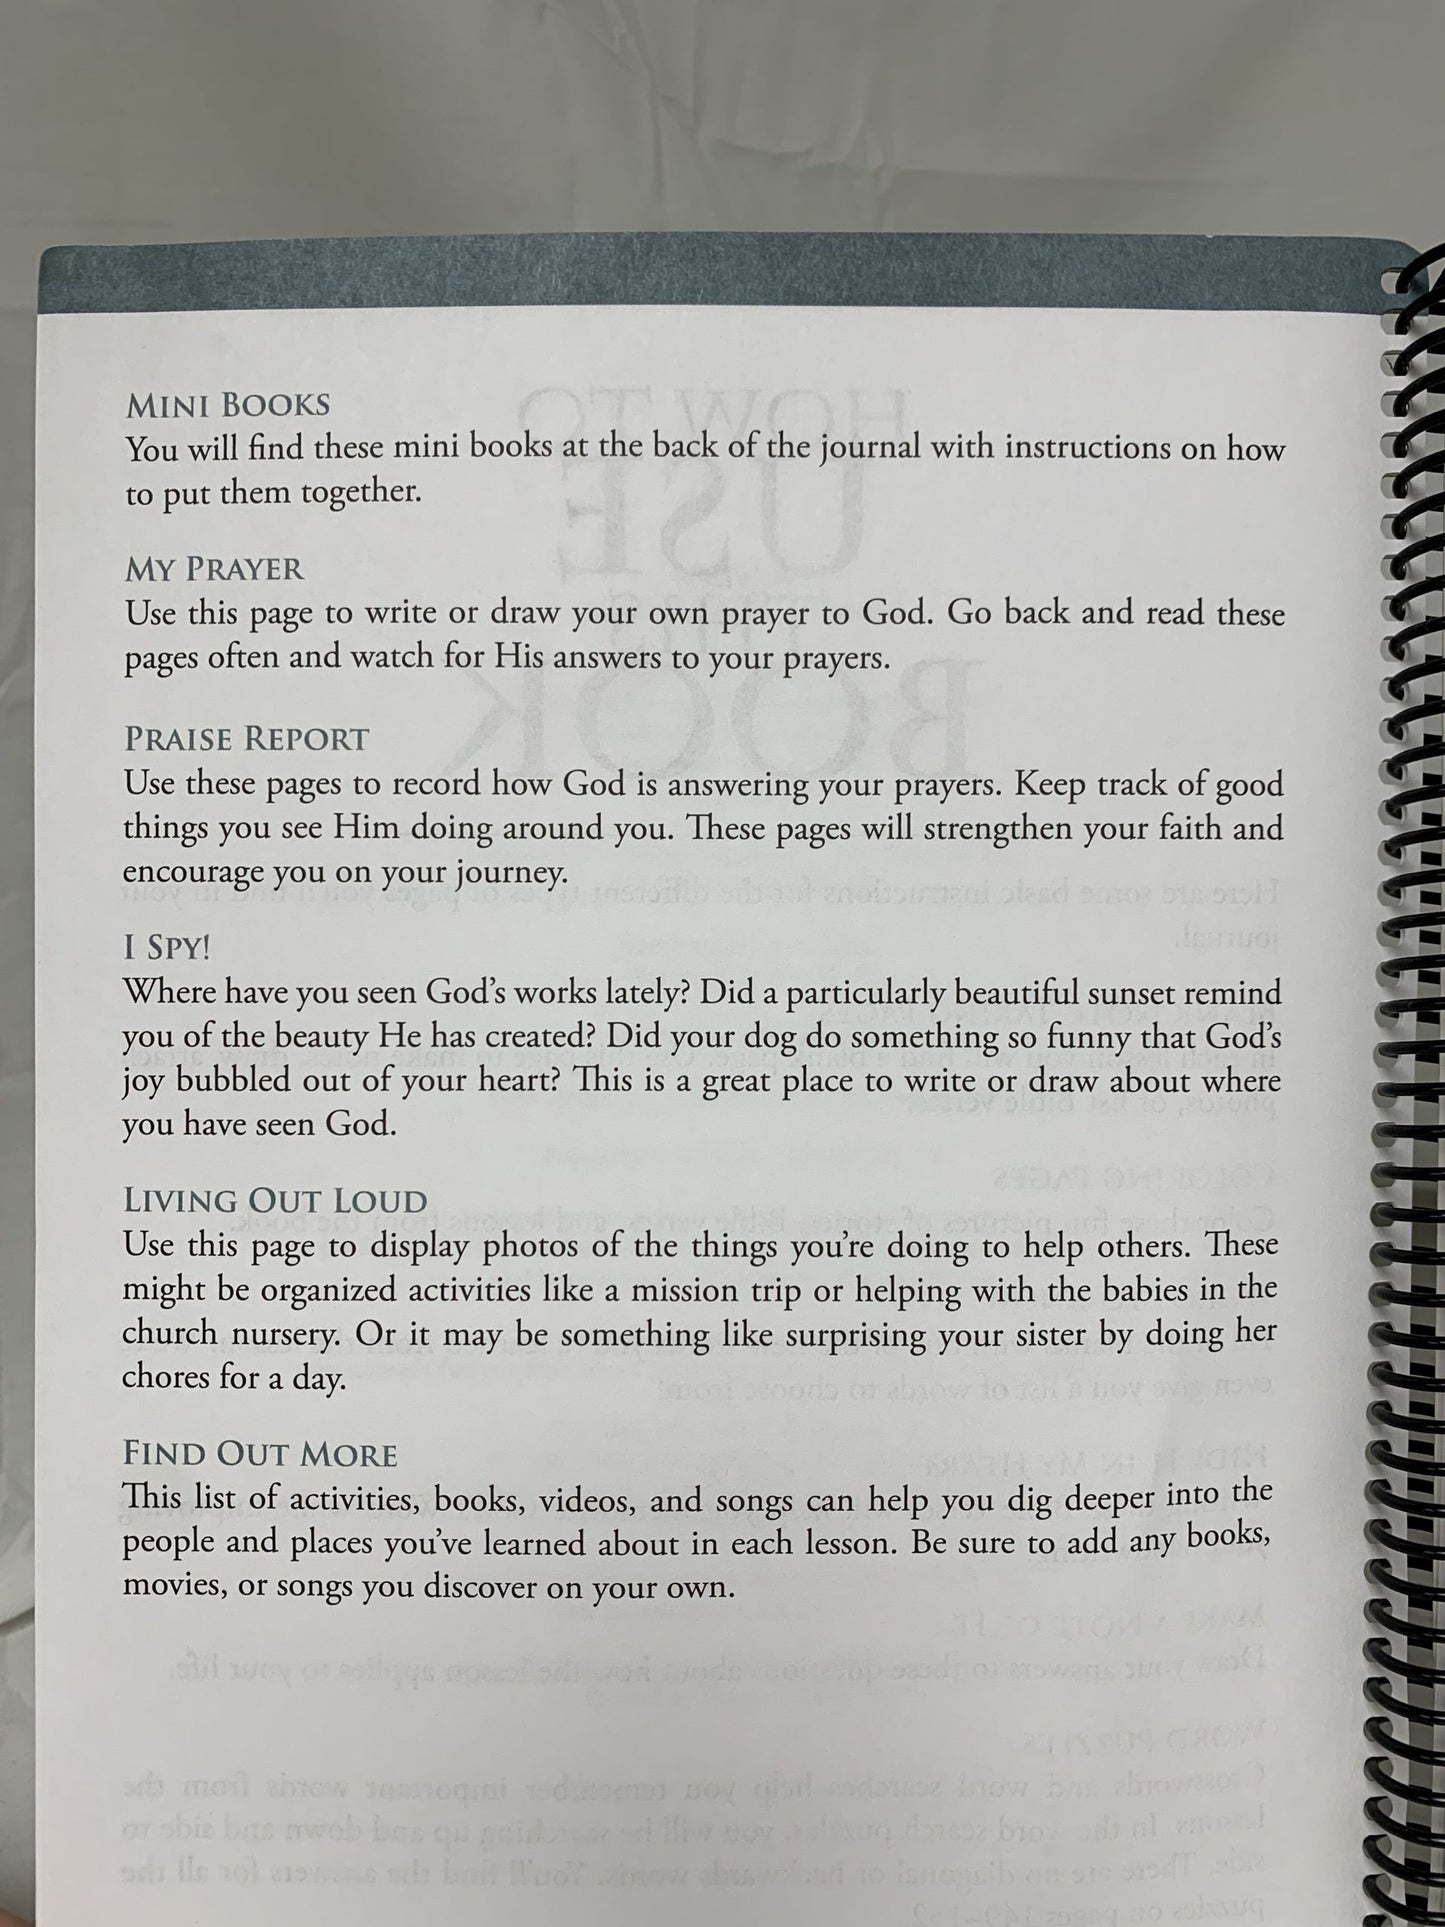 MINI BOOKS
You will find these mini books at the back of the journal with instructions on how
to put them together.
MY PRAYER
Use this page to write or draw your own prayer to God. Go back and read these
pages often and watch for His answers to your prayers.
PRAISE REPORT
Use these pages to record how God is answering your prayers. Keep track of good
things you see Him doing around you. These pages will strengthen your faith and
encourage you on your journey.
I SPY!
Where have you seen God's works lately? Did a particularly beautiful sunset remind
you of the beauty He has created? Did your dog do something so funny that God's
joy bubbled out of your heart? This is a great place to write or draw about where
you have seen God.
LIVING OUT LOUD
Use this page to display photos of the things you're doing to help others. These
might be organized activities like a mission trip or helping with the babies in the
church nursery. Or it may be something like surprising your sister by doing her
chores for a day.
FIND OUT MORE
This list of activities, books, videos, and songs can help you dig deeper into the
people and places you've learned about in each lesson. Be sure to add any books,
movies, or songs you discover on your own.